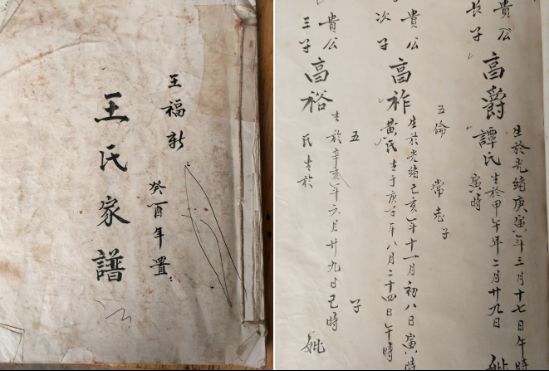 王福新
王氏家譜
癸酉年置
貴公
長子
高爵
生於光緒庚寅年三月十七日午時
譚氏
生於甲午年二月廿九日
寅時
妣
五倫
常志子
貴公
次子
高祚
生於光緒己亥年十一月初八日寅時
黄氏
生于庚子年八月二十四日午時
貴公
三子
高裕
五
子
生於辛亥年六月廿九日巳時
氏生於
妣